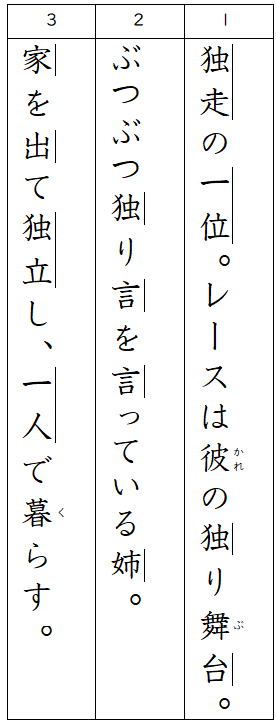 1
独走の一位。レースは彼の独り舞台。
かれ
ぶ
2
ぶつぶつ独り言を言っている姉。
3
家を出て独立し、一人で暮らす。
く